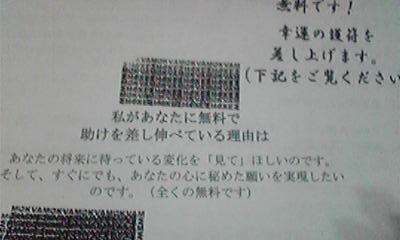 無料です！
幸運の護符を
差し上げます。
(下記をご覧ください
私があなたに無料で
助けを差し伸べている理由は
あなたの将来に待っている変化を「見て」ほしいのです。
そして、すぐにでも、あなたの心に秘めた願いを実現したい
のです。（全くの無料です）